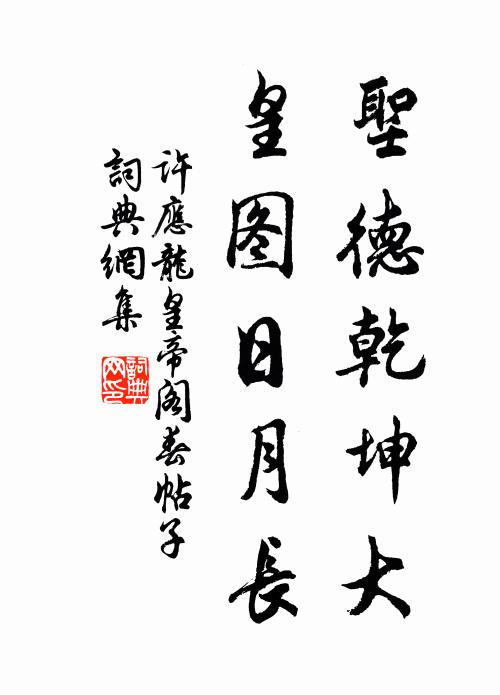 聖德乾坤大
皇图日月長
許應龍皇帝閣春帖子
詞典網集
詞典网印